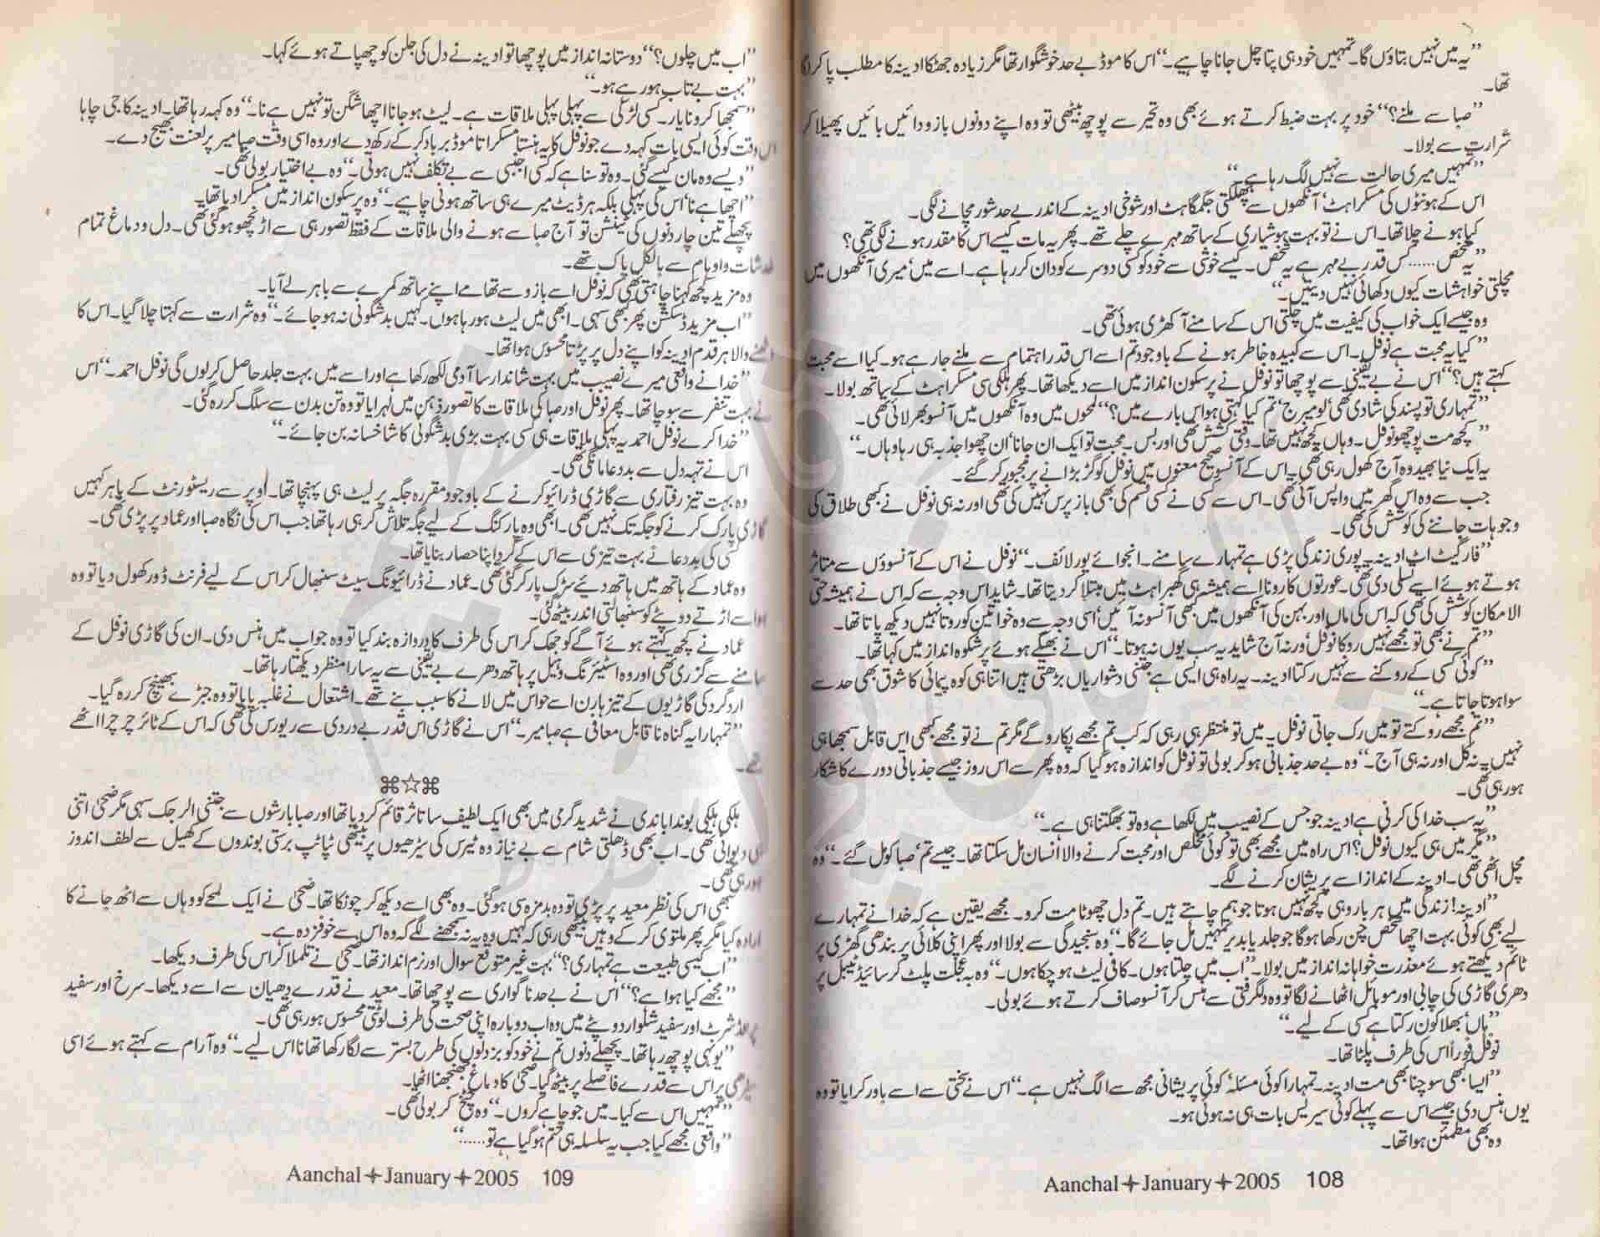 ”یہ میں نہیں بتاؤں گا۔ تمہیں خود ہی پتا چل جانا چاہیے۔“ اس کا موڈ بے حد خوشگوار تھا مگر زیادہ جھٹکا ادینہ کا مطلب پا کر لگا
تھا۔
”صبا سے ملنے؟“ خود پر بہت ضبط کرتے ہوئے بھی وہ تحیر سے پوچھ بیٹھی تو وہ اپنے دونوں بازو دائیں بائیں پھیلا کر
شرارت سے بولا۔
”تمہیں میری حالت سے نہیں لگ رہا ہے۔“
اس کے ہونٹوں کی مسکراہٹ‘ آنکھوں سے چھلکتی جگمگاہٹ اور شوخی ادینہ کے اندر بے حد شور مچانے لگی۔
کیا ہونے چلا تھا۔ اس نے تو بہت ہوشیاری کے ساتھ مہرے چلے تھے۔ پھر یہ مات کیسے اس کا مقدر ہونے لگی تھی؟
”یہ شخص...... کس قدر بے مہر ہے یہ شخص۔ کیسے خوشی سے خود کو کسی دوسرے کو دان کر رہا ہے۔ اسے میں‘ میری آنکھوں میں
مچلتی خواہشات کیوں دکھائی نہیں دیتیں۔“
وہ جیسے ایک خواب کی کیفیت میں چلتی اس کے سامنے آ کھڑی ہوئی تھی۔
”کیا یہ محبت ہے نوفل۔ اس سے کبیدہ خاطر ہونے کے باوجود تم اسے اس قدر اہتمام سے ملنے جا رہے ہو۔ کیا اسے محبت
کہتے ہیں؟“ اس نے بے یقینی سے پوچھا تو نوفل نے پرسکون انداز میں اسے دیکھا تھا۔ پھر ہلکی سی مسکراہٹ کے ساتھ بولا۔
”تمہاری تو پسند کی شادی تھی‘ لو میرج‘ تم کیا کہتی ہو اس بارے میں؟“ لمحوں میں وہ آنکھوں میں آنسو بھر لائی تھی۔
”کچھ مت پوچھو نوفل۔ وہاں کچھ نہیں تھا۔ وقتی کشش تھی اور بس۔ محبت تو ایک ان جانا‘ ان چھوا جذبہ ہی رہا وہاں۔“
یہ ایک نیا بھید وہ آج کھول رہی تھی۔ اس کے آنسو صحیح معنوں میں نوفل کو گڑبڑانے پر مجبور کر گئے۔
جب سے وہ اس گھر میں واپس آئی تھی۔ اس سے کسی نے کسی قسم کی بھی باز پرس نہیں کی تھی اور نہ ہی نوفل نے کبھی طلاق کی
وجوہات جاننے کی کوشش کی تھی۔
”فارگیٹ اٹ ادینہ۔ پوری زندگی پڑی ہے تمہارے سامنے۔ انجوائے یور لائف۔“ نوفل نے اس کے آنسوؤں سے متاثر
ہوتے ہوئے اسے تسلی دی تھی۔ عورتوں کا رونا اسے ہمیشہ ہی گھبراہٹ میں مبتلا کر دیتا تھا۔ شاید اس وجہ سے کہ اس نے ہمیشہ حتی
الامکان کوشش کی تھی کہ اس کی ماں اور بہن کی آنکھوں میں کبھی آنسو نہ آئیں‘ اسی وجہ سے وہ خواتین کو روتا نہیں دیکھ پاتا تھا۔
”تم نے بھی تو مجھے نہیں روکا نوفل‘ ورنہ آج شاید یہ سب یوں نہ ہوتا۔“ اس نے بھیگے ہوئے پر شکوہ انداز میں کہا تھا۔
”کوئی کسی کے روکنے سے نہیں رکتا ادینہ۔ یہ راہ ہی ایسی ہے جتنی دشواریاں بڑھتی ہیں اتنا ہی کوہ پیمائی کا شوق بھی حد سے
سوا ہوتا جاتا ہے۔“
”تم مجھے روکتے تو میں رک جاتی نوفل۔ میں تو منتظر ہی رہی کہ کب تم مجھے پکارو گے مگر تم نے تو مجھے کبھی اس قابل سمجھا ہی
نہیں۔ نہ کل اور نہ ہی آج۔“ وہ بے حد جذباتی ہو کر بولی تو نوفل کو اندازہ ہو گیا کہ وہ پھر سے اس روز جیسے جذباتی دورے کا شکار
ہو رہی تھی۔
”یہ سب خدا کی کرنی ہے ادینہ جو جس کے نصیب میں لکھا ہے وہ تو بھگتنا ہی ہے۔“
”مگر میں ہی کیوں نوفل؟ اس راہ میں مجھے بھی تو کوئی مخلص اور محبت کرنے والا انسان مل سکتا تھا۔ جیسے تم‘ صبا کو مل گئے۔“ وہ
مچل اٹھی تھی۔ ادینہ کے انداز اسے پریشان کرنے لگے۔
”ادینہ! زندگی میں ہر بار وہی کچھ نہیں ہوتا جو ہم چاہتے ہیں۔ تم دل چھوٹا مت کرو۔ مجھے یقین ہے کہ خدا نے تمہارے
لیے بھی کوئی بہت اچھا شخص چن رکھا ہو گا جو جلد یا بدیر تمہیں مل جائے گا۔“ وہ سنجیدگی سے بولا اور پھر اپنی کلائی پر بندھی گھڑی پر
ٹائم دیکھتے ہوئے معذرت خواہانہ انداز میں بولا۔ ”اب میں چلتا ہوں۔ کافی لیٹ ہو چکا ہوں۔“ وہ بہ عجلت پلٹ کر سائیڈ ٹیبل پر
دھری گاڑی کی چابی اور موبائل اٹھانے لگا تو وہ دلگرفتی سے ہنس کر آنسو صاف کرتے ہوئے بولی۔
”ہاں‘ بھلا کون رکتا ہے کسی کے لیے۔“
نوفل فوراً اس کی طرف پلٹا تھا۔
”ایسا بھی سوچنا بھی مت ادینہ۔ تمہارا کوئی مسئلہ‘ کوئی پریشانی مجھ سے الگ نہیں ہے۔“ اس نے سختی سے اسے باور کرایا تو وہ
یوں ہنس دی جیسے اس سے پہلے کوئی سیریس بات ہی نہ ہوئی ہو۔
وہ بھی مطمئن ہوا تھا۔
Aanchal✦January✦2005 108
”اب میں چلوں؟“ دوستانہ انداز میں پوچھا تو ادینہ نے دل کی جلن کو چھپاتے ہوئے کہا۔
”بہت بے تاب ہو رہے ہو۔“
”سمجھا کرو نا یار۔ کسی لڑکی سے پہلی پہلی ملاقات ہے۔ لیٹ ہو جانا اچھا شگن تو نہیں ہے نا۔“ وہ کہہ رہا تھا۔ ادینہ کا جی چاہا
اس وقت کوئی ایسی بات کہہ دے جو نوفل کا یہ ہنستا مسکراتا موڈ برباد کر کے رکھ دے اور وہ اسی وقت صبا میر پر لعنت بھیج دے۔
”ویسے وہ مان کیسے گئی۔ وہ تو سنا ہے کہ کسی اجنبی سے بے تکلف نہیں ہوتی۔“ وہ بے اختیار بولی تھی۔
”اچھا ہے نا‘ اس کی پہلی بلکہ ہر ڈیٹ میرے ہی ساتھ ہونی چاہیے۔“ وہ پرسکون انداز میں مسکرا دیا تھا۔
پچھلے تین چار دنوں کی ٹینشن تو آج صبا سے ہونے والی ملاقات کے فقط تصور ہی سے اڑنچھو ہو گئی تھی۔ دل و دماغ تمام
خدشات و اوہام سے بالکل پاک تھے۔
وہ مزید کچھ کہنا چاہتی تھی کہ نوفل اسے بازو سے تھامے اپنے ساتھ کمرے سے باہر لے آیا۔
”اب مزید ڈسکشن پھر کبھی سہی۔ ابھی میں لیٹ ہو رہا ہوں۔ کہیں بدشگونی نہ ہو جائے۔“ وہ شرارت سے کہتا چلا گیا۔ اس کا
اٹھنے والا ہر قدم ادینہ کو اپنے دل پر پڑتا محسوس ہوا تھا۔
”خدا نے واقعی میرے نصیب میں بہت شاندار سا آدمی لکھ رکھا ہے اور اسے میں بہت جلد حاصل کر لوں گی نوفل احمد۔“ اس
نے بہت تنفر سے سوچا تھا۔ پھر نوفل اور صبا کی ملاقات کا تصور ذہن میں لہرایا تو وہ تن بدن سے سلگ کر رہ گئی۔
”خدا کرے نوفل احمد یہ پہلی ملاقات ہی کسی بہت بڑی بدشگونی کا شاخسانہ بن جائے۔“
اس نے تہہ دل سے بددعا مانگی تھی۔
وہ بہت تیز رفتاری سے گاڑی ڈرائیو کرنے کے باوجود مقررہ جگہ پر لیٹ ہی پہنچا تھا۔ اوپر سے ریسٹورنٹ کے باہر کہیں
گاڑی پارک کرنے کو جگہ تک نہیں تھی۔ ابھی وہ پارکنگ کے لیے جگہ تلاش کر ہی رہا تھا جب اس کی نگاہ صبا اور عماد پر پڑی تھی۔
کسی کی بددعا نے بہت تیزی سے اس کے گرد اپنا حصار بنایا تھا۔
وہ عماد کے ہاتھ میں ہاتھ دیئے سڑک پار کر گئی تھی۔ عماد نے ڈرائیونگ سیٹ سنبھال کر اس کے لیے فرنٹ ڈور کھول دیا تو وہ
ہوا سے اڑتے دوپٹے کو سنبھالتی اندر بیٹھ گئی۔
عماد نے کچھ کہتے ہوئے آگے کو جھک کر اس کی طرف کا دروازہ بند کیا تو وہ جواب میں ہنس دی۔ ان کی گاڑی نوفل کے
سامنے سے گزری تھی اور وہ اسٹیئرنگ وہیل پر ہاتھ دھرے بے یقینی سے یہ سارا منظر دیکھتا رہا تھا۔
اردگرد کی گاڑیوں کے تیز ہارن اسے حواس میں لانے کا سبب بنے تھے۔ اشتعال نے غلبہ پایا تو وہ جبڑے بھینچ کر رہ گیا۔
”تمہارا یہ گناہ ناقابل معافی ہے صبا میر۔“ اس نے گاڑی اس قدر بے دردی سے ریورس کی تھی کہ اس کے ٹائر چرچرا اٹھے
تھے۔
⌘☆⌘
ہلکی ہلکی بوندا باندی نے شدید گرمی میں بھی ایک لطیف سا تاثر قائم کر دیا تھا اور صبا بارشوں سے جتنی الرجک سہی مگر ضحیٰ اتنی
ہی دیوانی تھی۔ اب بھی ڈھلتی شام سے بے نیاز وہ ٹیرس کی سیڑھیوں پر بیٹھی ٹپاٹپ برستی بوندوں کے کھیل سے لطف اندوز
ہو رہی تھی۔
تبھی اس کی نظر معید پر پڑی تو وہ بدمزہ سی ہو گئی۔ وہ بھی اسے دیکھ کر چونکا تھا۔ ضحیٰ نے ایک لمحے کو وہاں سے اٹھ جانے کا
ارادہ کیا مگر پھر ملتوی کر کے وہیں بیٹھی رہی کہ کہیں وہ یہ نہ سمجھنے لگے کہ وہ اس سے خوفزدہ ہے۔
”اب کیسی طبیعت ہے تمہاری؟“ بہت غیر متوقع سوال اور نرم انداز تھا۔ ضحیٰ نے تلملا کر اس کی طرف دیکھا۔
”مجھے کیا ہوا ہے؟“ اس نے بے حد ناگواری سے پوچھا تھا۔ معید نے قدرے دھیان سے اسے دیکھا۔ سرخ اور سفید
پرنٹڈ شرٹ اور سفید شلوار دوپٹے میں وہ اب دوبارہ اپنی صحت کی طرف لوٹتی محسوس ہو رہی تھی۔
”یونہی پوچھ رہا تھا۔ پچھلے دنوں تم نے خود کو بزدلوں کی طرح بستر سے لگا رکھا تھا نا اس لیے۔“ وہ آرام سے کہتے ہوئے اسی
سیڑھی پر اس سے قدرے فاصلے پر بیٹھ گیا۔ ضحیٰ کا دماغ جھنجھنا اٹھا۔
”تمہیں اس سے کیا۔ میں جو چاہے کروں۔“ وہ چیخ کر بولی تھی۔
”واقعی مجھے کیا جب یہ سلسلہ ہی ختم ہو گیا ہے تو......“
Aanchal✦January✦2005 109